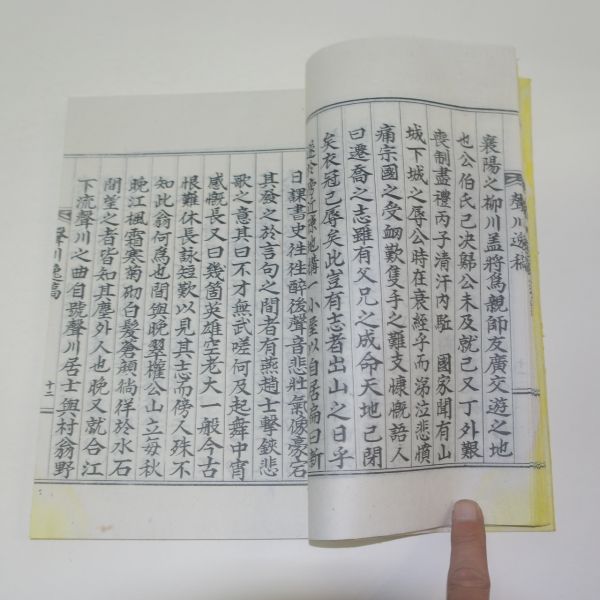 襄陽之柳川盖將爲親師友廣交遊之地
也公伯氏已决歸公未及就已又丁外艱
喪制盡禮丙子清汗內駈 國家聞有山
城下城之辱公時在衰絰乎而涕泣悲憤
痛宗國之受衂歎隻手之難支慷慨語人
曰遷喬之志雖有父兄之成命天地已閉
矣衣冠已辱矣此豈有志者出山之日乎
一小屋以自居扁曰斷
日課書史徃徃醉後聲音悲壯氣像豪宕
其發之於言句之間者有燕趙士擊鋏悲
歌之意其曰不才無武嗟何及起舞中宵
感慨長又曰幾箇英雄空老大一般今古
恨難休長詠短歎以見其志而傍人殊不
知此翁何爲也間與晩翠權公山立每秋
晩江楓霜寒菊砌白髮蒼顔徜徉於水石
間望之者皆知其塵外人也晩又就合江
下流聲川之曲自號聲川居士與村翁野
聲川逸稿
十二
聲川逸稿